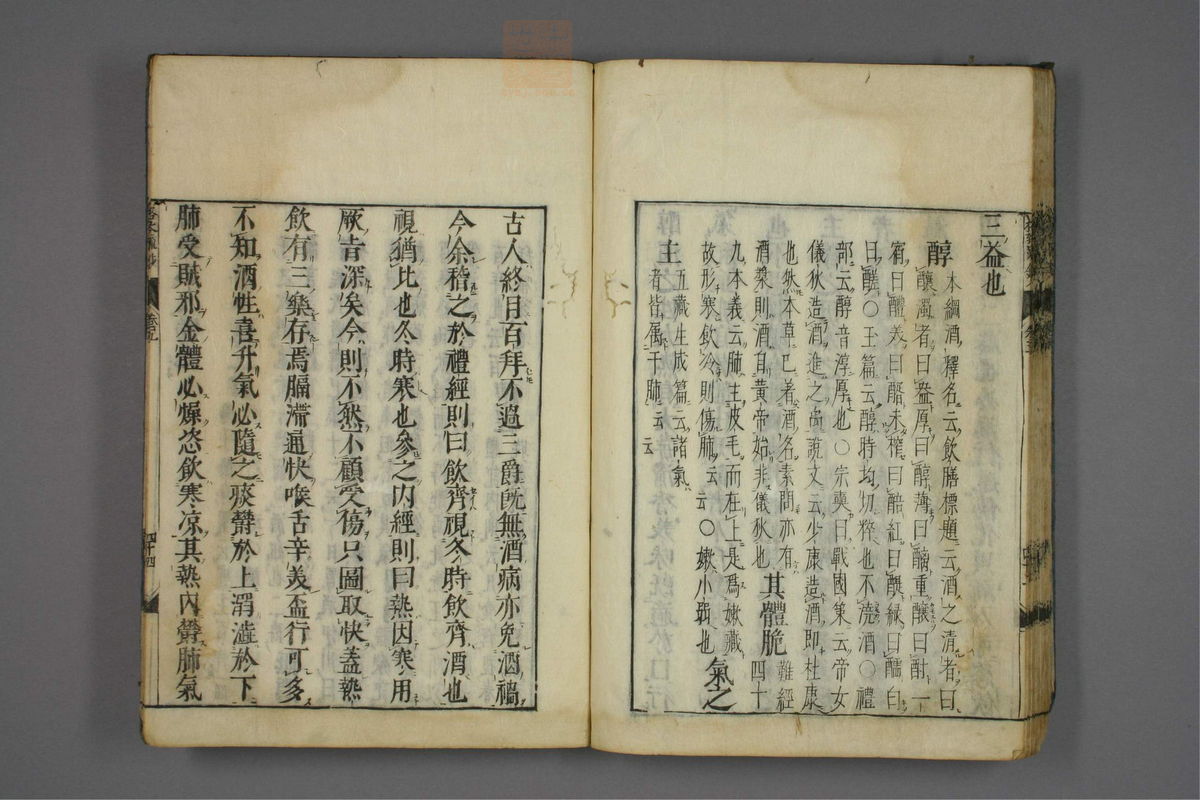 三益也
醇 本綱酒釋名云飲膳標題云酒之清者曰
釀濁者曰盎厚曰醇薄曰醨重釀曰酎一
宿曰醴美曰醑未榨曰醅紅曰醍綠曰醽白
曰醝〇玉篇云醇時均切粹也不澆酒〇禮
部云醇音淳厚也〇宗奭曰戰國策云帝女
儀狄造酒進之禹說文云少康造酒即杜康
也然本草已著酒名素問亦有
酒漿則酒自黃帝始非儀狄也 其體脆 難經
四十
九本義云肺主皮毛而在上是爲嫩臟
故形寒飲冷則傷肺云云〇嫩小弱也 氣之
主 五藏生成篇云諸氣
者皆属于肺云云
古人終月百拜不過三爵既無酒病亦免酒禍
今余稽之於禮經則曰飲齊視冬時飲齊酒也
視猶比也冬時寒也參之内經則曰熱因寒用
厥旨深矣今則不然不顧受傷只圖取快蓋熱
飲有三樂存焉膈滯通快喉舌辛美盃行可多
不知酒性喜升氣必隨之痰欝於上溺澁於下
肺受賊邪金體必燥恣飲寒凉其熱内欝肺氣
四十四